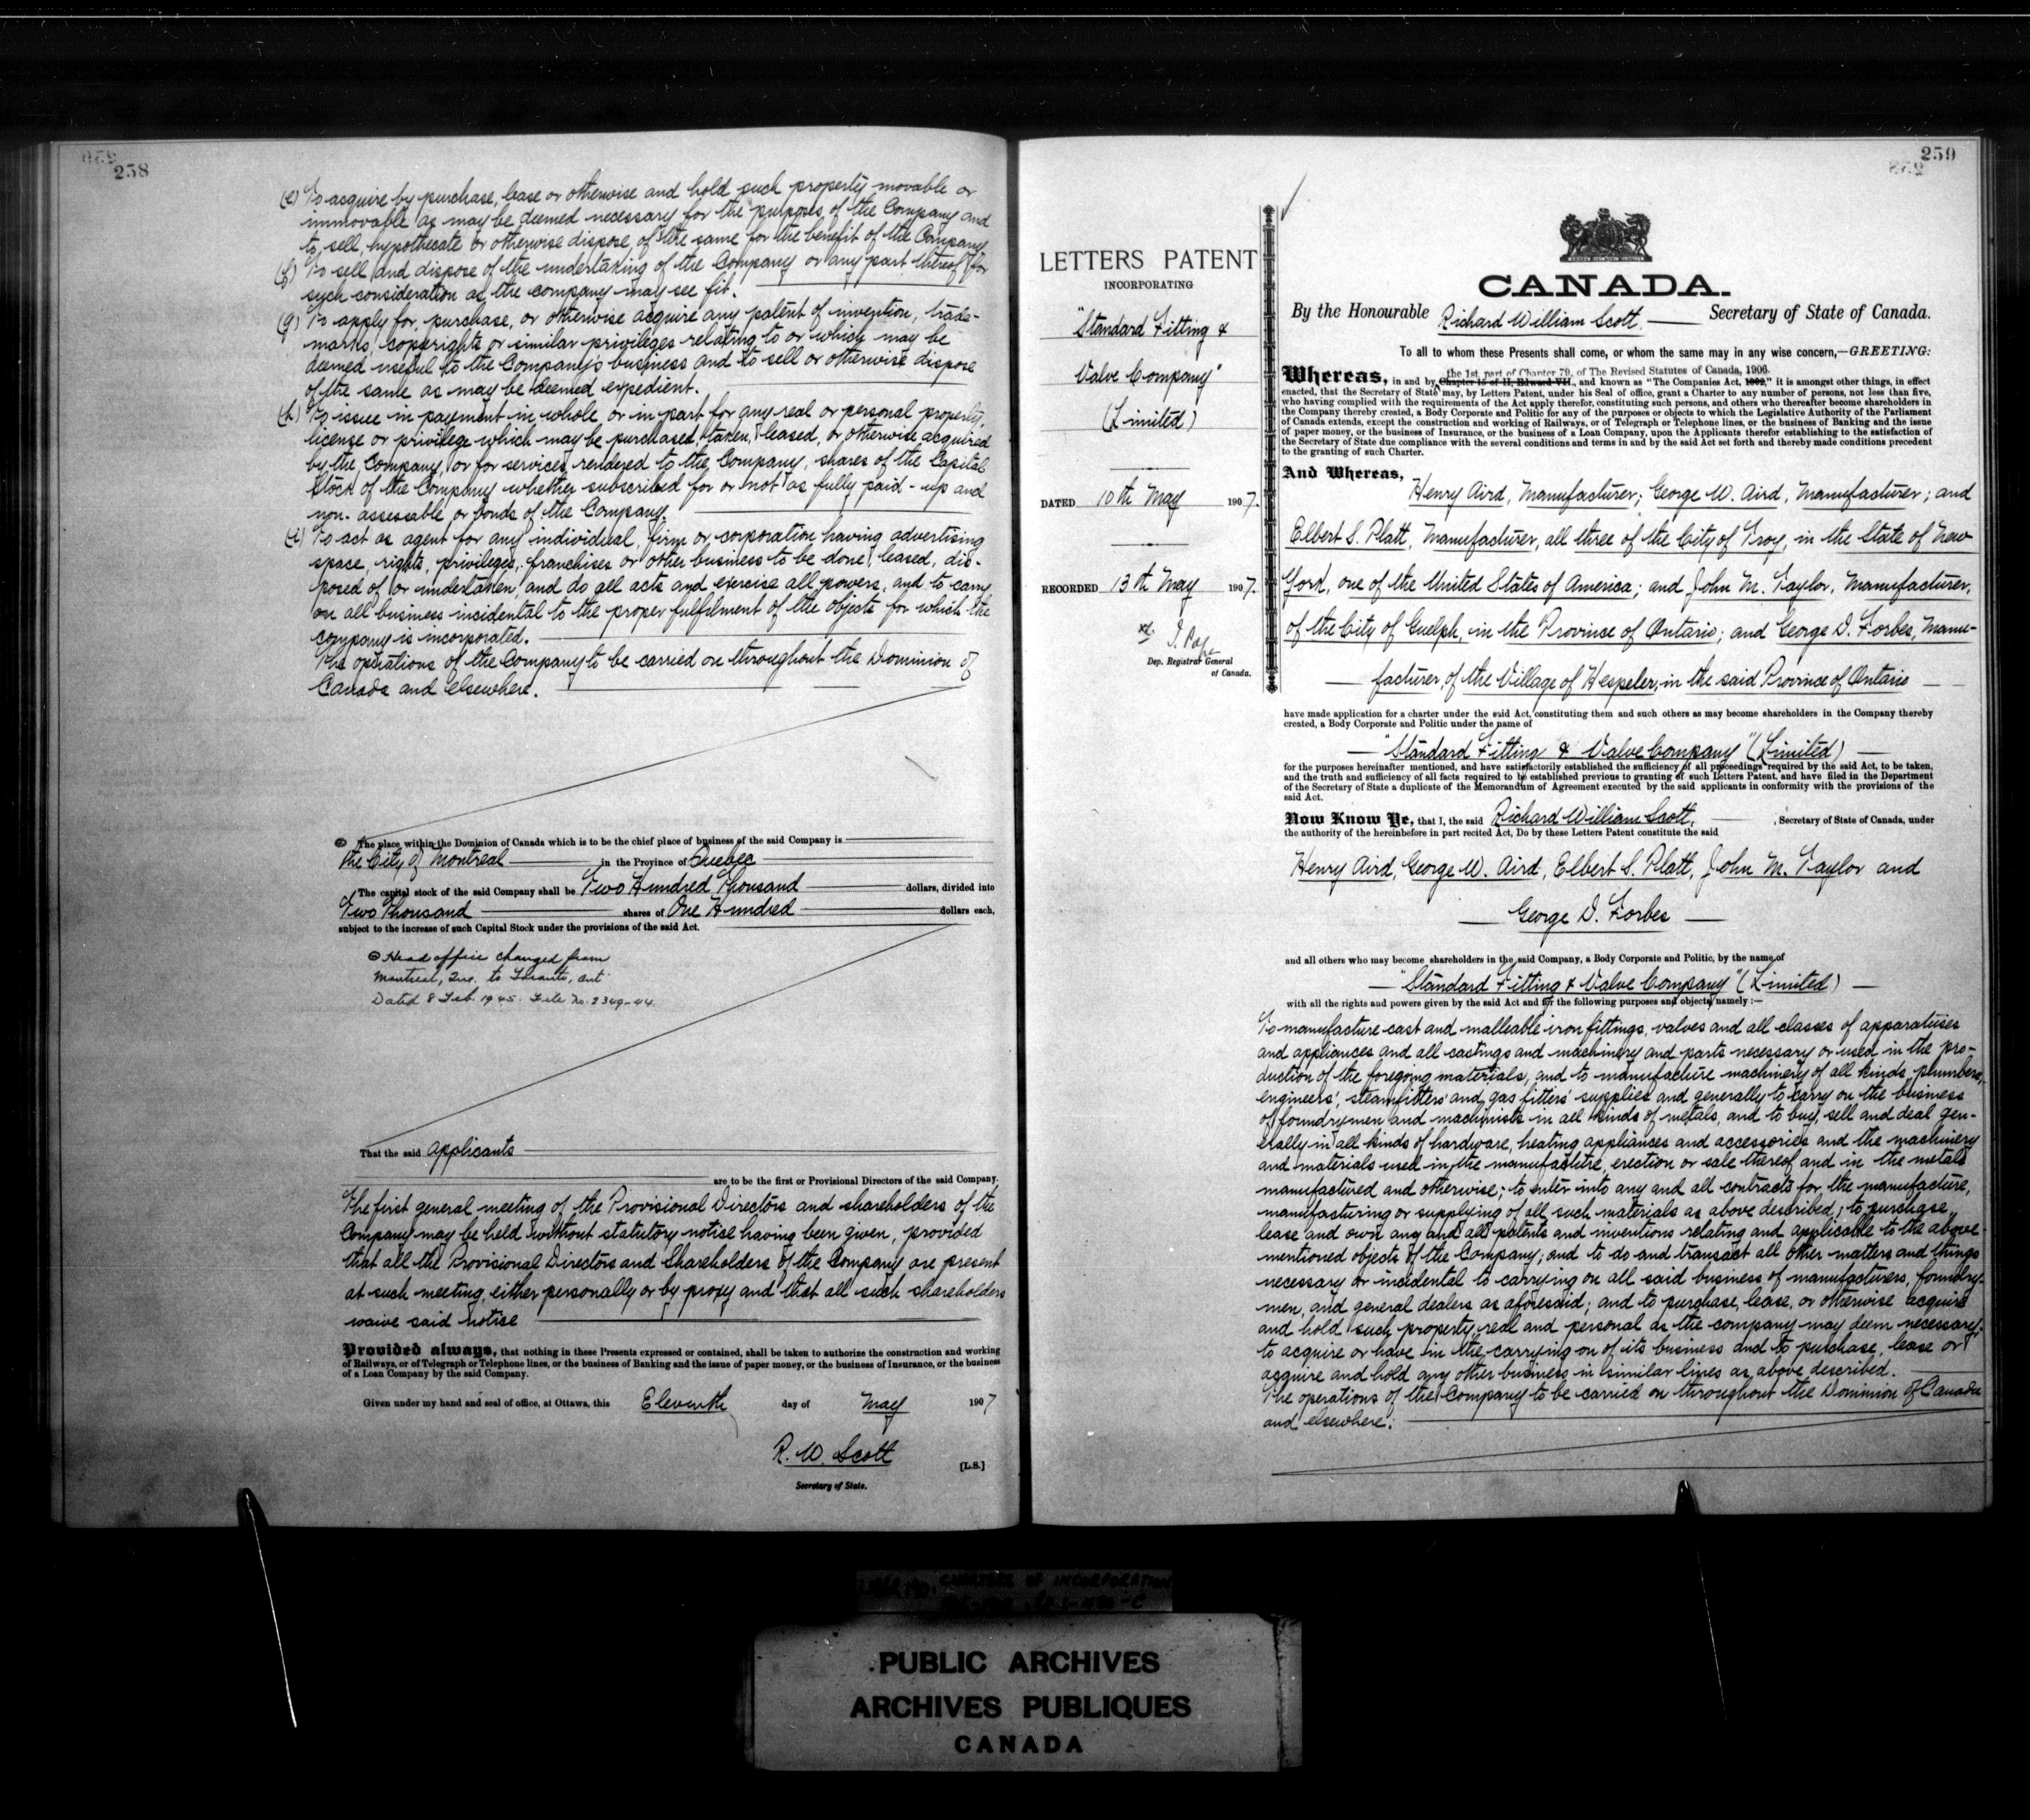 258
(e) To acquire by purchase, lease or otherwise and hold such property movable or
immovable as may be deemed necessary for the purposes of the Company and
to sell, hypothecate or otherwise dispose of the same for the benefit of the Company
(f) To sell and dispose of the undertaking of the Company or any part thereof for
such consideration as the company may see fit.
(g) To apply for, purchase, or otherwise acquire any patent of invention, trade-
marks, copyrights or similar privileges relating to or which may be
deemed useful to the Company's business and to sell or otherwise dispose
of the same as may be deemed expedient.
(h) To issue in payment in whole or in part for any real or personal property,
license or privilege which may be purchased, taken, leased, or otherwise acquired
by the Company, or for services rendered to the Company, shares of the Capital
Stock of the Company whether subscribed for or not as fully paid-up and
non-assessable or bonds of the Company.
(i) To act as agent for any individual, firm or corporation having advertising
space, rights, privileges, franchises or other business to be done, leased, dis-
posed of or undertaken, and do all acts and exercise all powers, and to carry
on all business incidental to the proper fulfilment of the objects for which the
company is incorporated.
The operations of the Company to be carried on throughout the Dominion of
Canada and elsewhere.
The place within the Dominion of Canada which is to be the chief place of business of the said Company is
the City of Montreal in the Province of Quebec
The capital stock of the said Company shall be Two Hundred Thousand dollars, divided into
Two Thousand shares of One Hundred dollars each,
subject to the increase of such Capital Stock under the provisions of the said Act.
Head office changed from
Montreal, Que. to Toronto, Ont.
Dated 8 Feb. 1945. File No. 2349-44.
That the said applicants
are to be the first or Provisional Directors of the said Company.
The first general meeting of the Provisional Directors and shareholders of the
Company may be held without statutory notice having been given, provided
that all the Provisional Directors and Shareholders of the Company are present
at such meeting, either personally or by proxy and that all such shareholders
waive said notice
Provided always, that nothing in these Presents expressed or contained, shall be taken to authorize the construction and working
of Railways, or of Telegraph or Telephone lines, or the business of Banking and the issue of paper money, or the business of Insurance, or the business
of a Loan Company by the said Company.
Given under my hand and seal of office, at Ottawa, this Eleventh day of May 1907
R. W. Scott
[L.S.]
Secretary of State.
259
LETTERS PATENT
INCORPORATING
"Standard Fitting &
Valve Company"
(Limited)
DATED 10th May 1907.
RECORDED 13th May 1907.
Dep. Registrar General
of Canada.
CANADA.
By the Honourable Richard William Scott Secretary of State of Canada.
To all to whom these Presents shall come, or whom the same may in any wise concern,—GREETING:
the 1st. part of Chapter 79, of The Revised Statutes of Canada, 1906.
Whereas, in and by Chapter 15 of II, Edward VII., and known as "The Companies Act, 1902," it is amongst other things, in effect
enacted, that the Secretary of State may, by Letters Patent, under his Seal of office, grant a Charter to any number of persons, not less than five,
who having complied with the requirements of the Act apply therefor, constituting such persons, and others who thereafter become shareholders in
the Company thereby created, a Body Corporate and Politic for any of the purposes or objects to which the Legislative Authority of the Parliament
of Canada extends, except the construction and working of Railways, or of Telegraph or Telephone lines, or the business of Banking and the issue
of paper money, or the business of Insurance, or the business of a Loan Company, upon the Applicants therefor establishing to the satisfaction of
the Secretary of State due compliance with the several conditions and terms in and by the said Act set forth and thereby made conditions precedent
to the granting of such Charter.
And Whereas,
Henry Aird, Manufacturer; George W. Aird, Manufacturer; and
Elbert S. Platt, Manufacturer, all three of the City of Troy, in the State of New
York, one of the United States of America; and John M. Taylor, Manufacturer,
of the City of Guelph, in the Province of Ontario; and George D. Forbes, Manu-
facturer, of the Village of Hespeler, in the said Province of Ontario
have made application for a charter under the said Act, constituting them and such others as may become shareholders in the Company thereby
created, a Body Corporate and Politic under the name of
"Standard Fitting & Valve Company" (Limited)
for the purposes hereinafter mentioned, and have satisfactorily established the sufficiency of all proceedings required by the said Act, to be taken,
and the truth and sufficiency of all facts required to be established previous to granting of such Letters Patent, and have filed in the Department
of the Secretary of State a duplicate of the Memorandum of Agreement executed by the said applicants in conformity with the provisions of the
said Act.
Now Know Ye, that I, the said Richard William Scott, , Secretary of State of Canada, under
the authority of the hereinbefore in part recited Act, Do by these Letters Patent constitute the said
Henry Aird, George W. Aird, Elbert S. Platt, John M. Taylor and
George D. Forbes
and all others who may become shareholders in the said Company, a Body Corporate and Politic, by the name of
"Standard Fitting & Valve Company" (Limited)
with all the rights and powers given by the said Act and for the following purposes and objects, namely :—
To manufacture cast and malleable iron fittings, valves and all classes of apparatuses
and appliances and all castings and machinery and parts necessary or used in the pro-
duction of the foregoing materials, and to manufacture machinery of all kinds, plumbers,
engineers', steamfitters' and gas fitters' supplies and generally to carry on the business
of foundrymen and machinists in all kinds of metals, and to buy, sell and deal gen-
erally in all kinds of hardware, heating appliances and accessories and the machinery
and materials used in the manufacture, erection or sale thereof and in the metals
manufactured and otherwise; to enter into any and all contracts for the manufacture,
manufacturing or supplying of all such materials as above described; to purchase,
lease and own any and all patents and inventions relating and applicable to the above
mentioned objects of the Company; and to do and transact all other matters and things
necessary or incidental to carrying on all said business of manufacturers, foundry-
men, and general dealers as aforesaid; and to purchase, lease, or otherwise acquire
and hold such property, real and personal as the company may deem necessary;
to acquire or have in the carrying on of its business and to purchase, lease or
acquire and hold any other business in similar lines as above described.
The operations of the Company to be carried on throughout the Dominion of Canada
and elsewhere.
PUBLIC ARCHIVES
ARCHIVES PUBLIQUES
CANADA